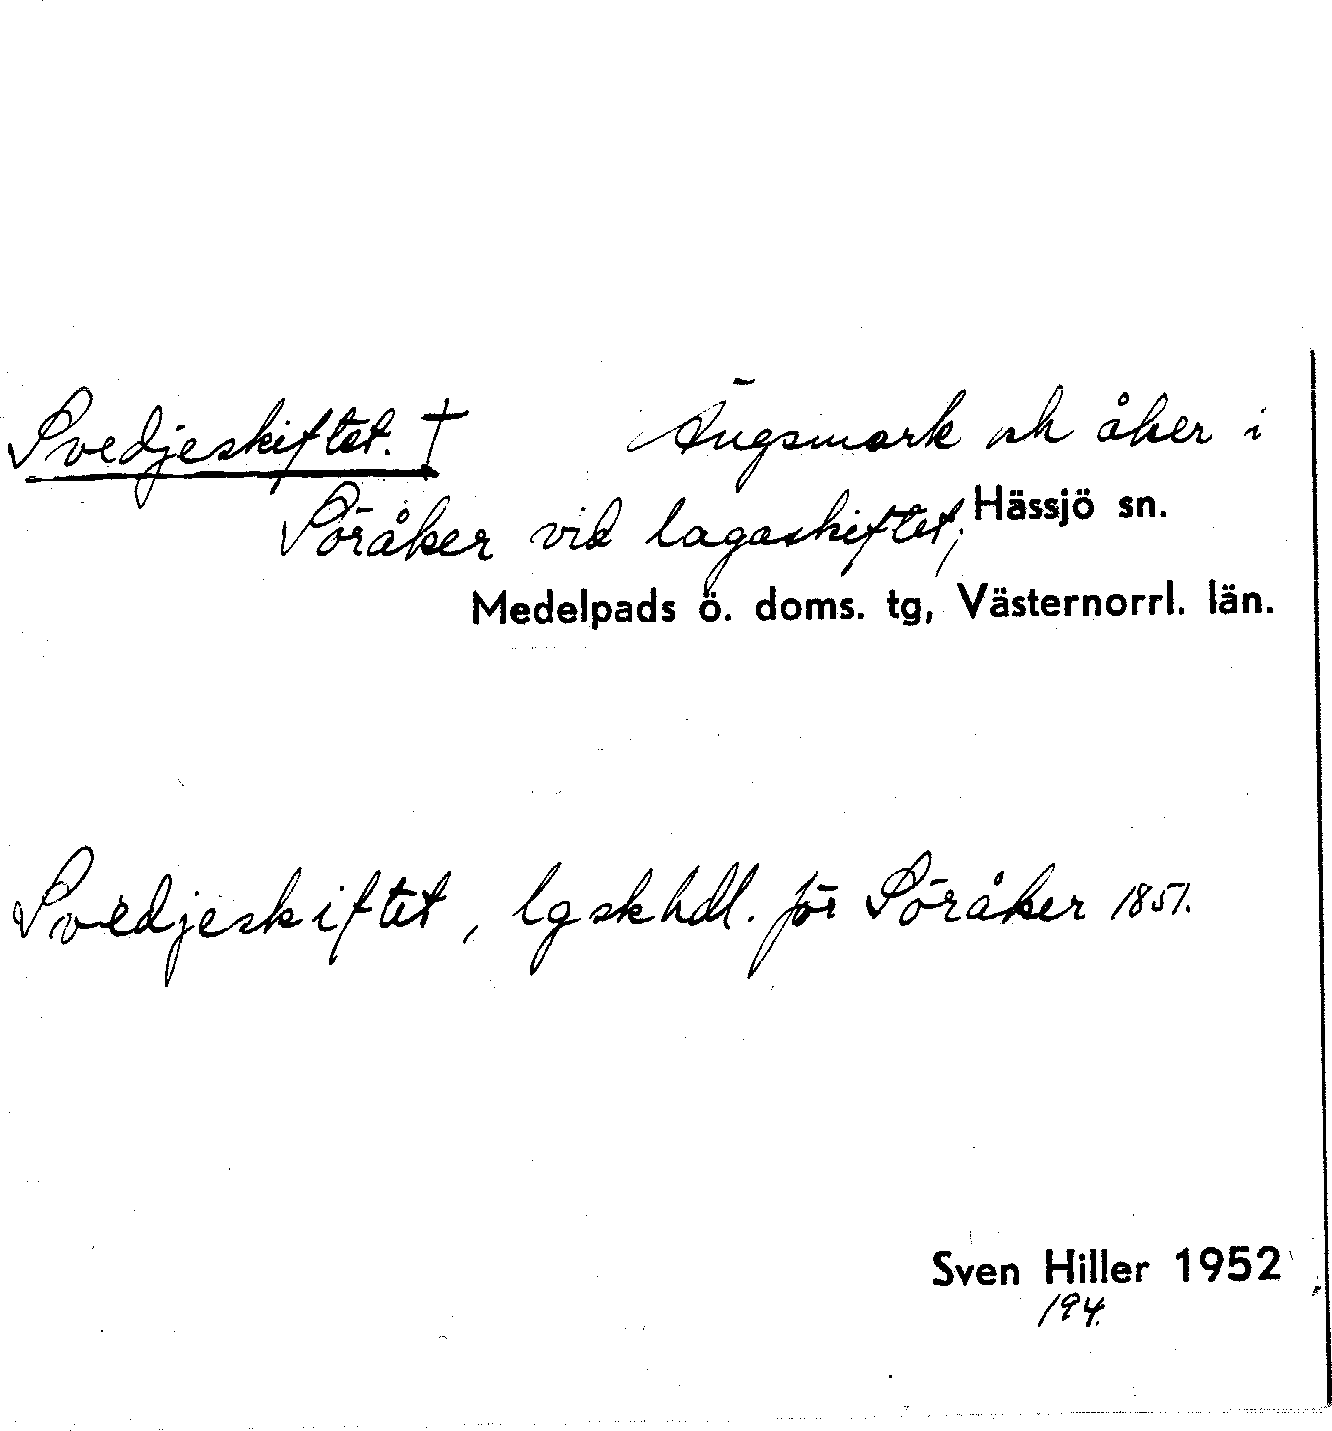 Svedjeskiftet. † Ängsmark och åker i
Söråker vid lagaskiftet, Hässjö sn.
Medelpads ö. doms. tg, Västernorrl. län.
Svedjeskiftet, lgskhdl. för Söråker 1851.
Sven Hiller 1952
194.